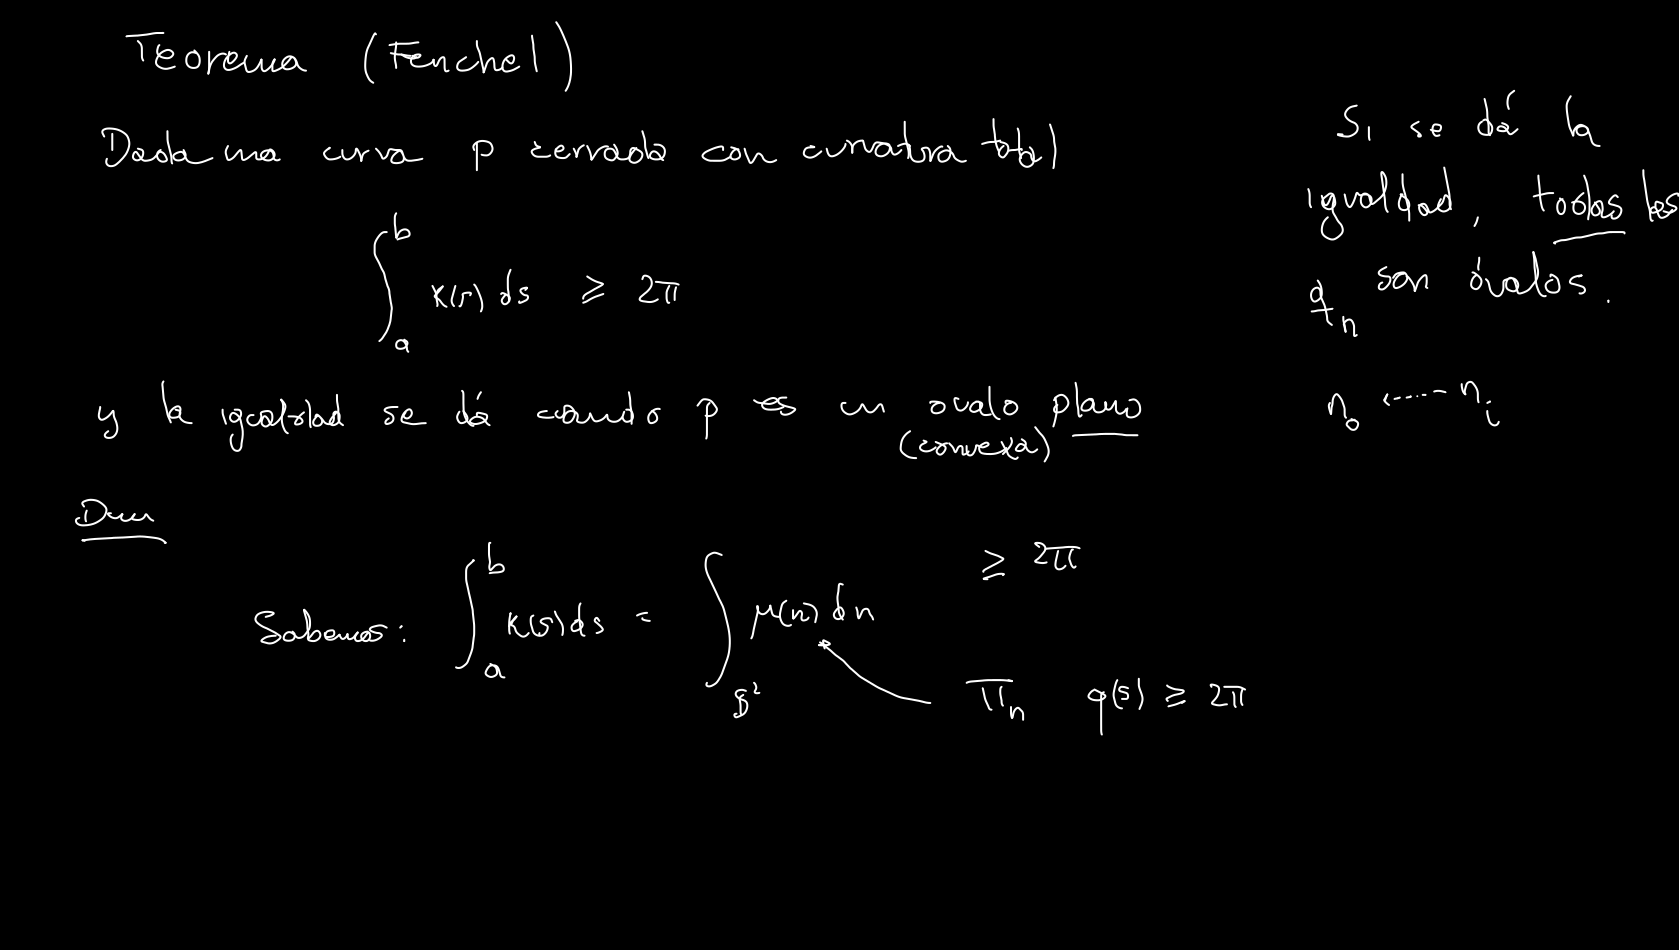 Teorema (Fenchel)
Dada una curva p cerrada con curvatura total
∫_a^b k(s) ds ≥ 2π
y la igualdad se dá cuando p es un ovalo plano
(convexa)
Dem
Sabemos: ∫_a^b k(s) ds = ∫_{S²} μ(n) dn ≥ 2π
π_n q(s) ≥ 2π
Si se dá la
igualdad, todas las
q_n son óvalos.
n_0 ⇠ n_i